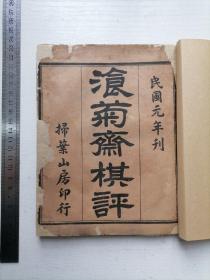 民國元年刊
湌菊齋棋評
掃葉山房印行